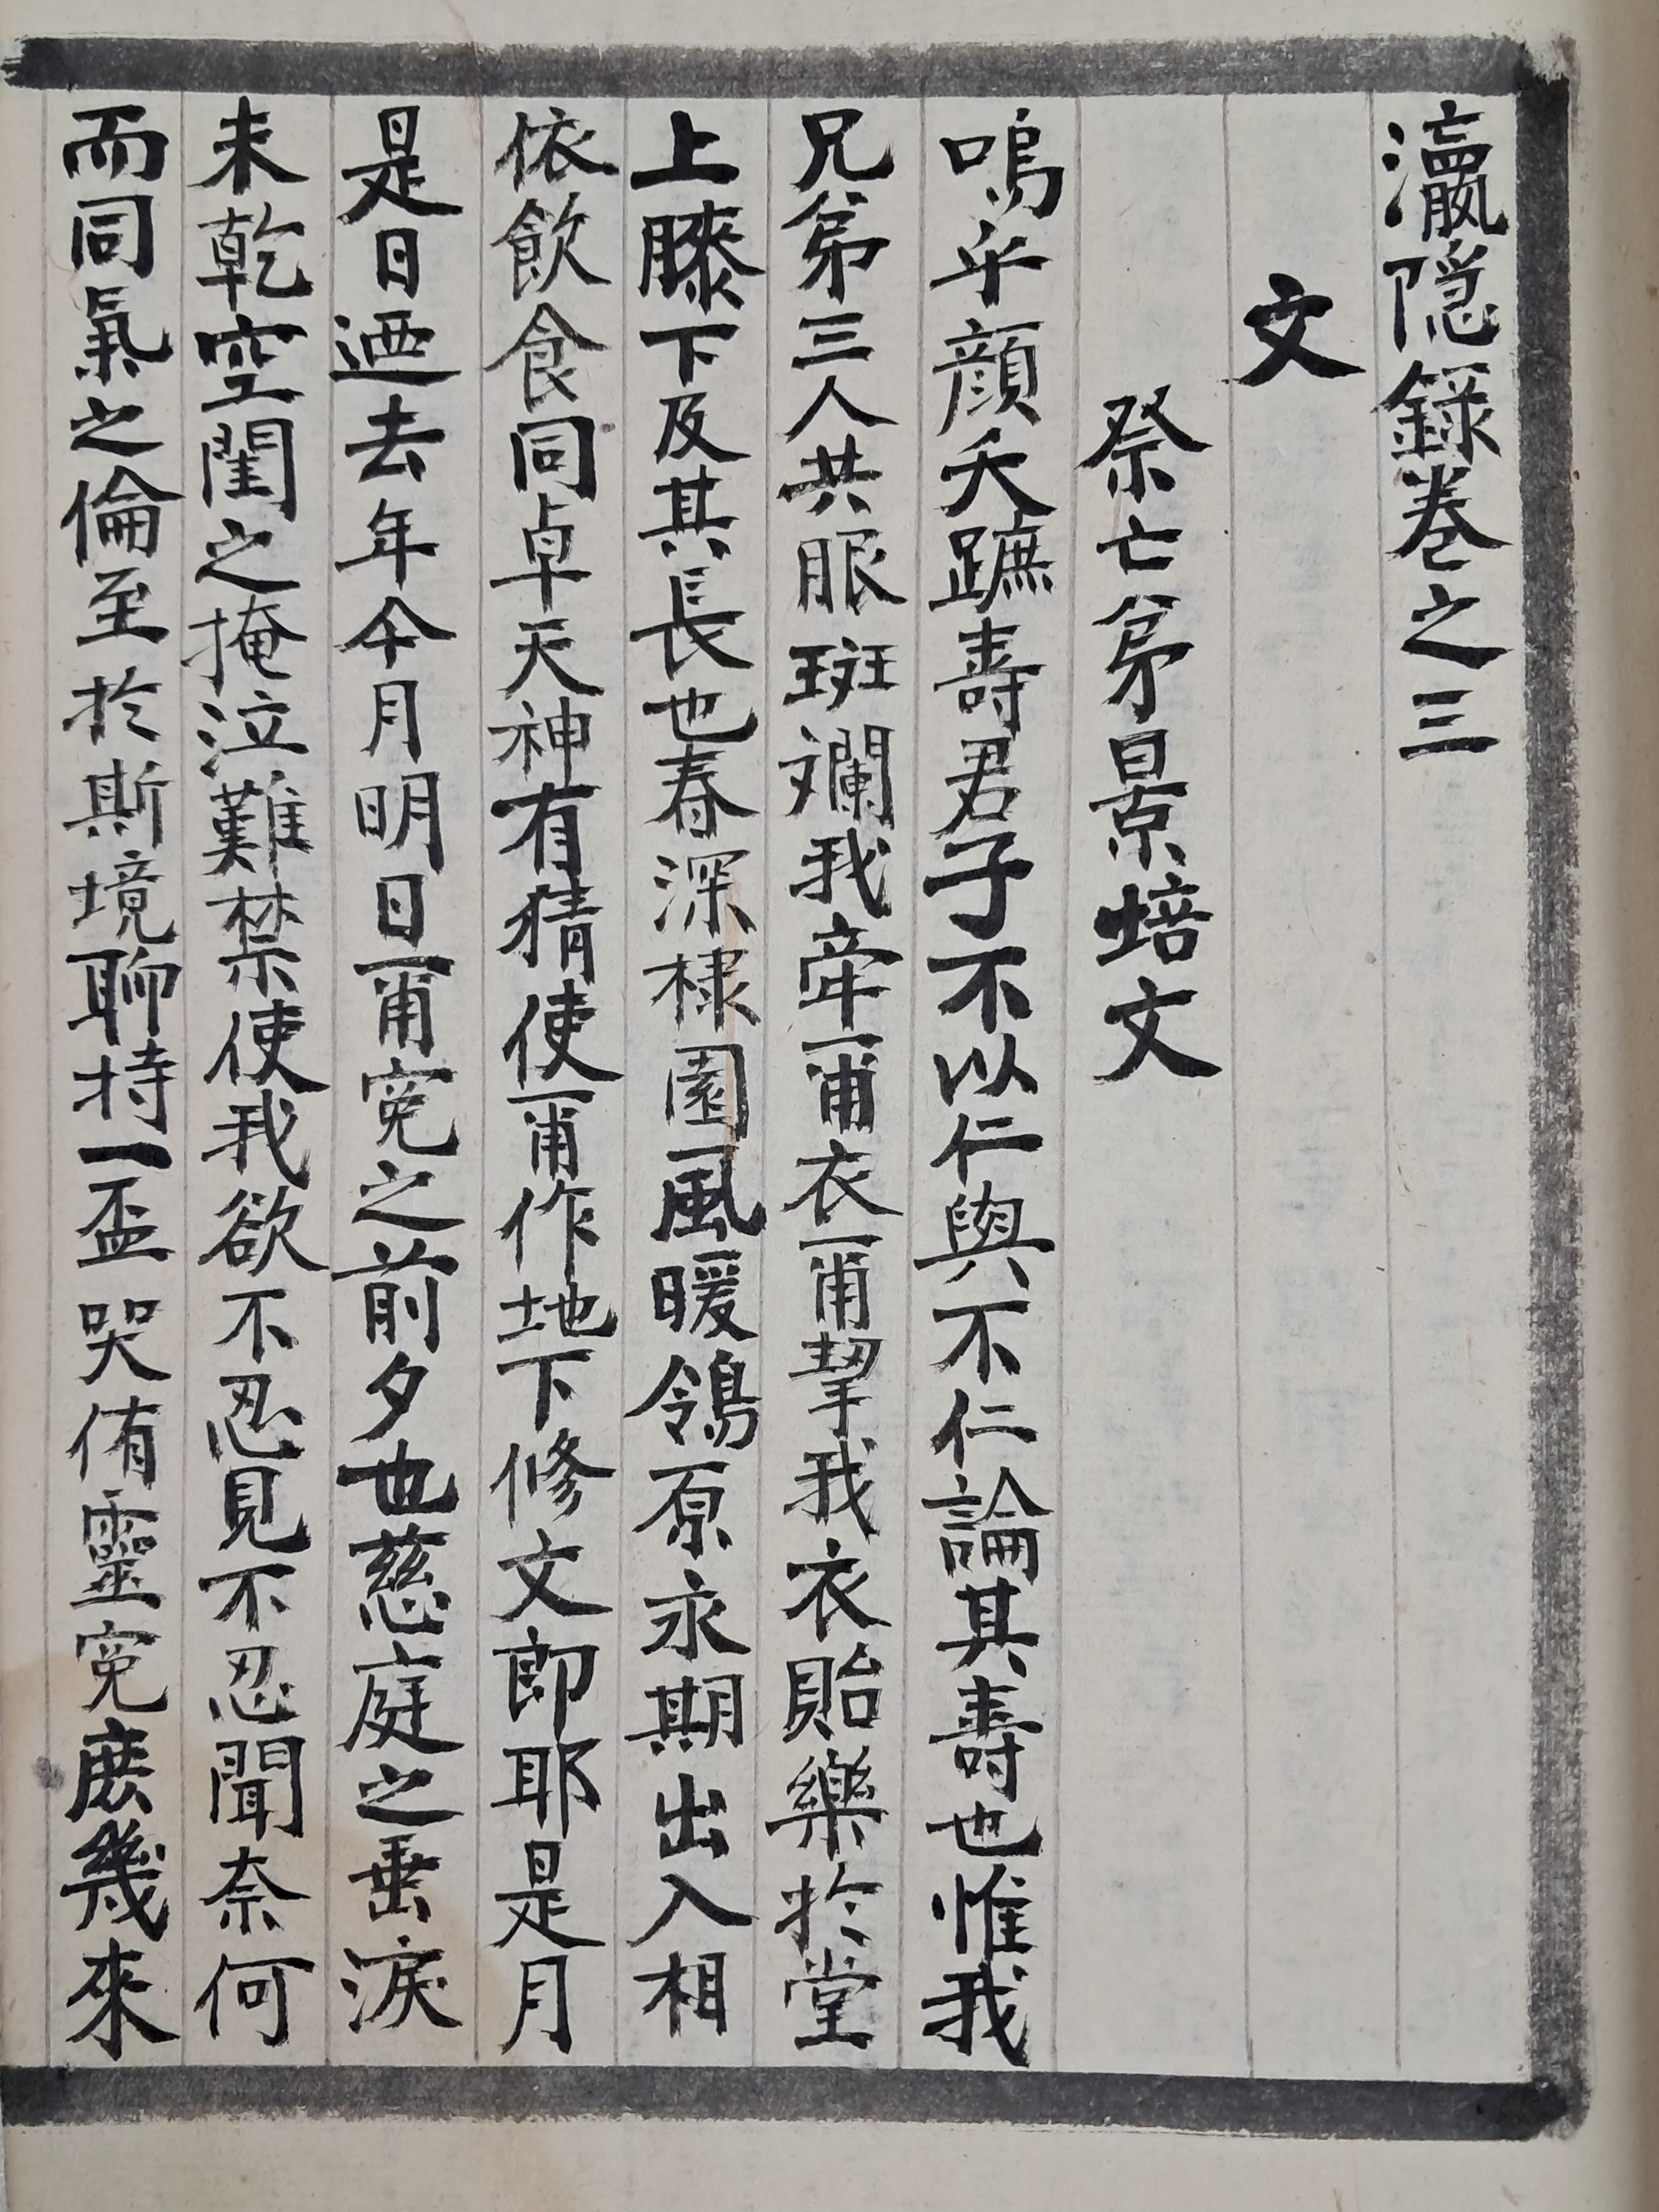 瀛隠錄卷之三
文
祭亡弟景培文
嗚乎顔夭蹠壽君子不以仁與不仁論其壽也惟我
兄弟三人共服斑斕我牽甭衣甭挈我衣貽樂於堂
上膝下及其長也春深棣園風暖鴒原永期出入相
依飲食同卓天神有猜使甭作地下修文郎耶是月
是日迺去年今月明日甭寃之前夕也慈庭之垂淚
未乾空閨之掩泣難禁使我欲不忍見不忍聞奈何
而同氣之倫至於斯境聊持一盃哭侑靈寃庶幾來